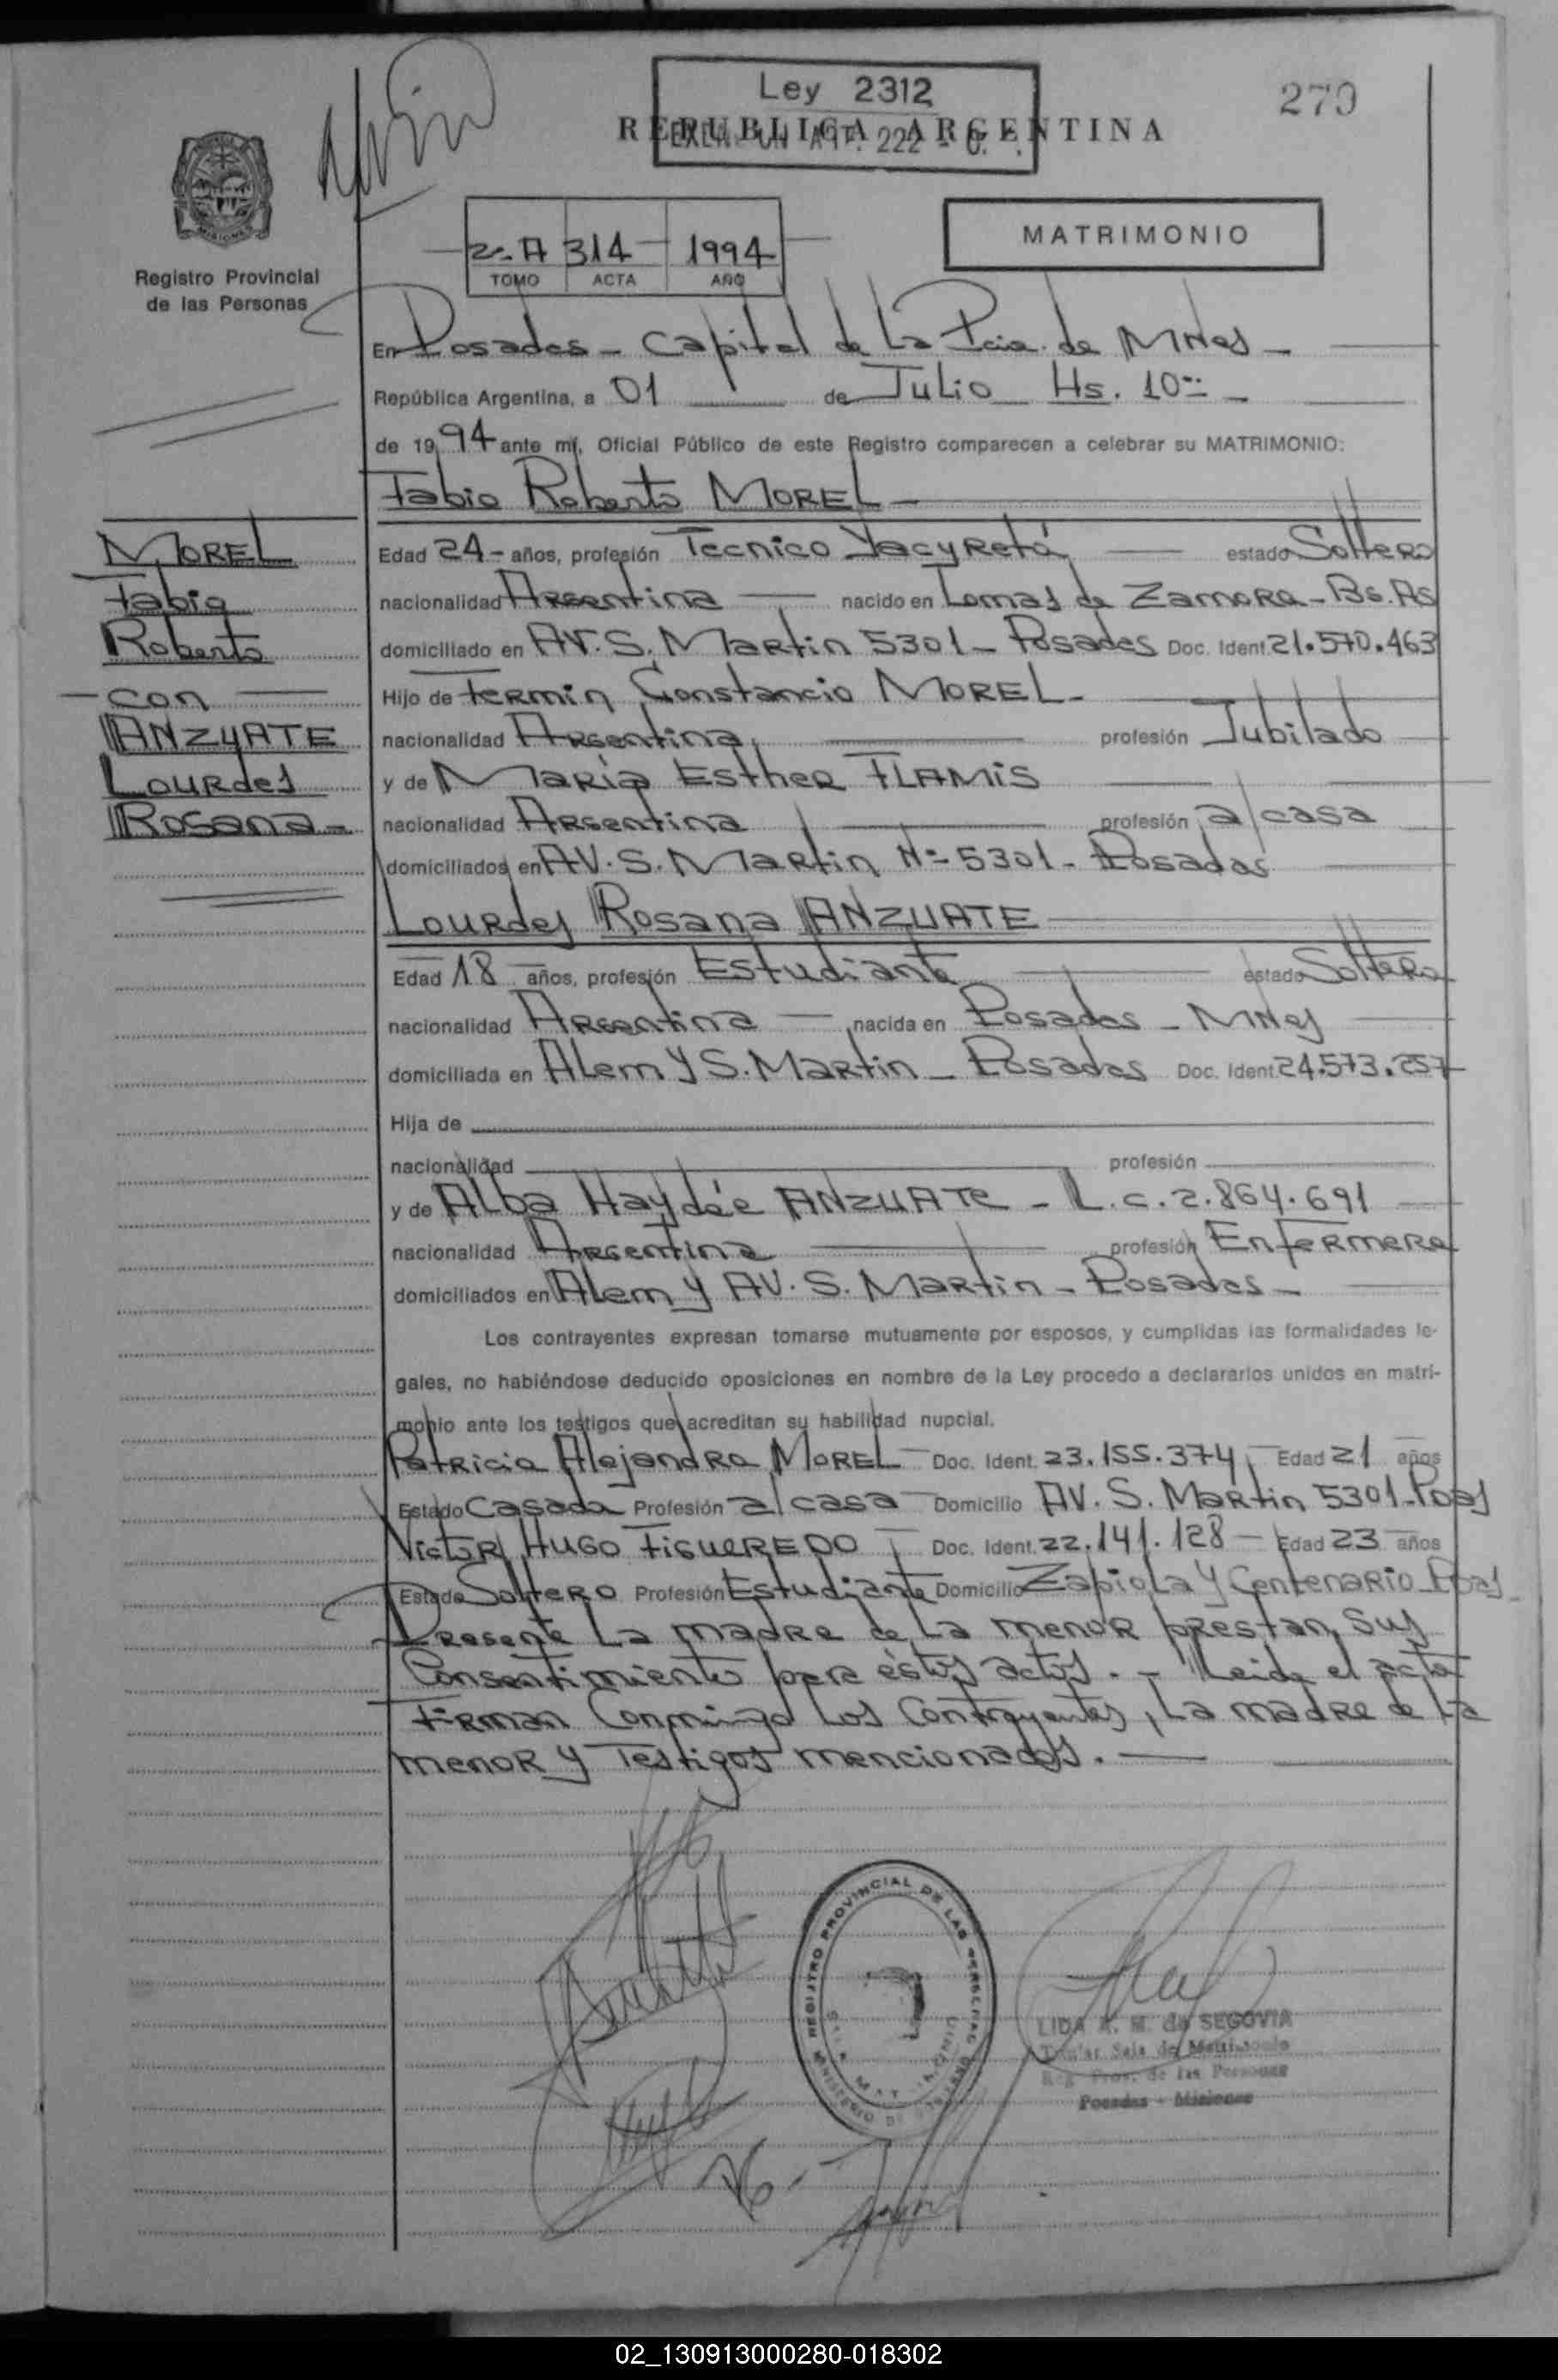 Ley 2312
270
REPUBLICA ARGENTINA
ART. 222
MISIONES
Registro Provincial
de las Personas
2º A 314 1994
TOMO ACTA AÑO
MATRIMONIO
En Posadas - Capital de La Pcia. de MNes -
República Argentina, a 01 de Julio Hs. 10
de 1994 ante mí, Oficial Público de este Registro comparecen a celebrar su MATRIMONIO:
Fabio Roberto MOREL
MOREL
Fabio
Roberto
con
ANZUATE
Lourdes
Rosana -
Edad 24 - años, profesión Tecnico Yacyretá estado Soltero
nacionalidad Argentina nacido en Lomas de Zamora - Bs. As
domiciliado en AV. S. Martin 5301 - Posadas Doc. Ident. 21.570.463
Hijo de Fermin Constancio MOREL -
nacionalidad Argentina profesión Jubilado
y de Maria Esther FLAMIS
nacionalidad Argentina profesión a/casa
domiciliados en AV. S. Martin Nº 5301 - Posadas
Lourdes Rosana ANZUATE
Edad 18 años, profesión Estudiante estado Soltera
nacionalidad Argentina nacida en Posadas - MNes
domiciliada en Alem y S. Martin - Posadas Doc. Ident. 24.573.257
Hija de
nacionalidad profesión
y de Alba Haydée ANZUATE - L.c. 2.864.691
nacionalidad Argentina profesión Enfermera
domiciliados en Alem y AV. S. Martin - Posadas -
Los contrayentes expresan tomarse mutuamente por esposos, y cumplidas las formalidades le-
gales, no habiéndose deducido oposiciones en nombre de la Ley procedo a declararlos unidos en matri-
monio ante los testigos que acreditan su habilidad nupcial.
Patricia Alejandra MOREL Doc. Ident. 23.155.374 Edad 21 años
Estado Casada Profesión a/casa Domicilio AV. S. Martin 5301 - Pdas
Victor Hugo FIGUEREDO Doc. Ident. 22.141.128 - Edad 23 años
Estado Soltero Profesión Estudiante Domicilio Zapiola y Centenario - Pdas -
Presente La madre de La menor prestan sus
Consentimiento para éstos actos. - Leida el acta
Firman Conmigo Los Contrayentes, La madre de La
menor y Testigos mencionados.
REGISTRO PROVINCIAL DE LAS PERSONAS
MINISTERIO DE
LIDA A. M. de SEGOVIA
Titular Sala de Matrimonio
Reg. Prov. de las Personas
Posadas - Misiones
02_130913000280-018302